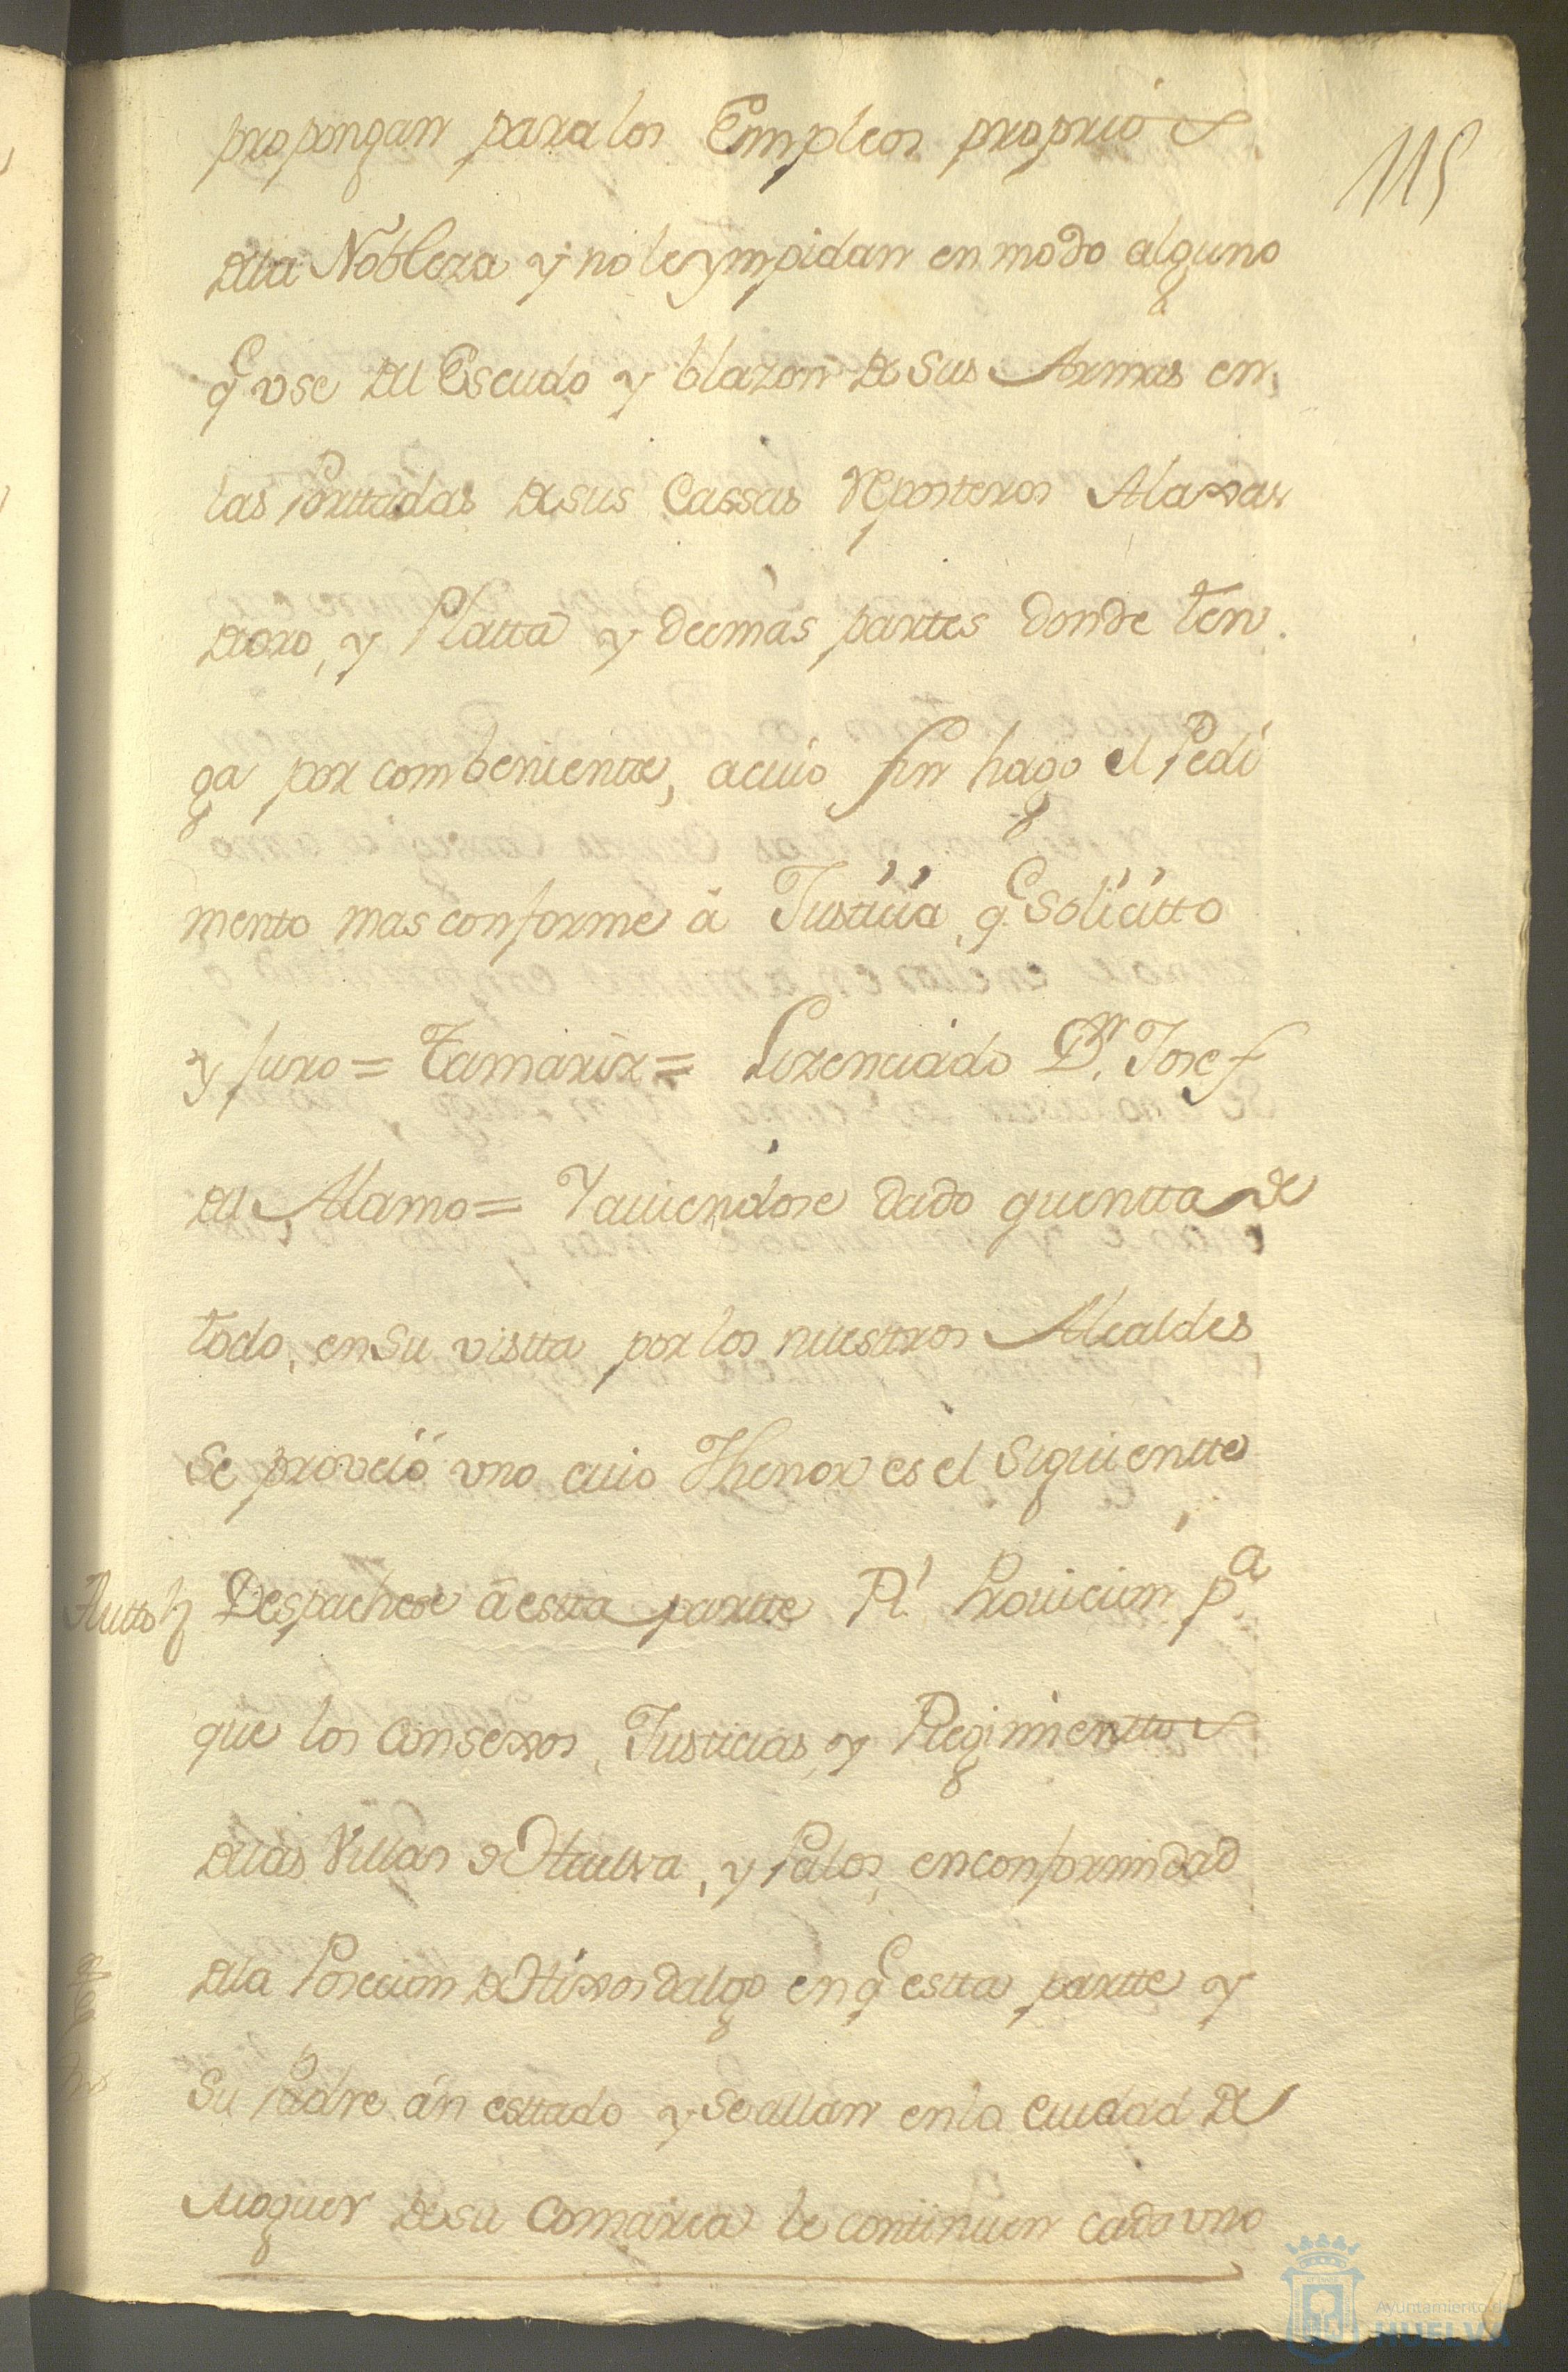 115
propongan para los Empleos proprios
dela Nobleza y no le ympidan en modo alguno
q.e vse del Escudo y blazon de sus Armas en
las Porttadas de sus Cassas Reposteros Alaxas
de oro, y Platta y deemas partes donde ten
ga por combeniente, acuio fin hago el Pedi
mento mas conforme á Justicia, q.e solicitto
y Juro = Tamariz = Lizenciado D.n Josef
del Alamo = Y auiendose dado quentta de
todo, en su vistta por los nuestros Alcaldes
se proveió vno cuio Thenor es el siguientte
Autto Despachese á estta partte R.l Prouicion p.a
que los Consexos, Justicias, y Regimienttos
delas Villas de Huelva, y Palos, en conformidad
dela Poseccion de Hixosdalgo en q.e estta partte y
su Padre án esttado y se allan en la Ciudad de
Moguer de su Comarca le continuen cada vno
Ayuntamiento de
HUELVA